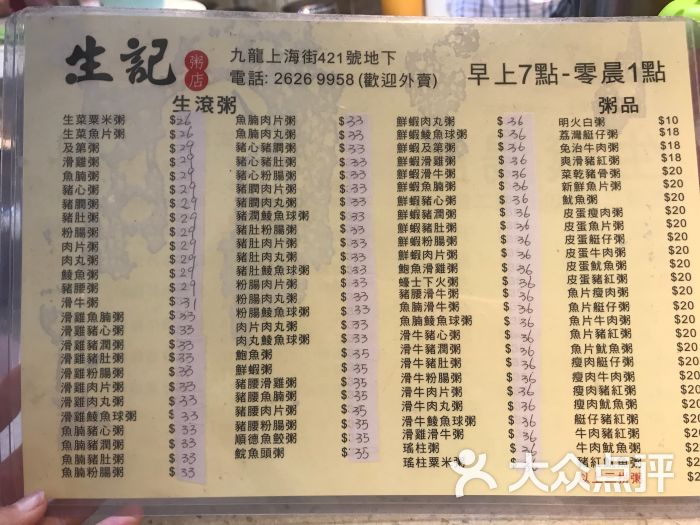 生記
粥店
九龍上海街421號地下
電話: 2626 9958 (歡迎外賣)
早上7點-零晨1點
生滾粥
生菜粟米粥 $26
生菜魚片粥 $26
及第粥 $29
滑雞粥 $29
魚腩粥 $29
豬心粥 $29
豬膶粥 $29
豬肚粥 $29
粉腸粥 $29
肉片粥 $29
肉丸粥 $29
鯪魚粥 $29
豬腰粥 $29
滑牛粥 $31
滑雞魚腩粥 $33
滑雞豬心粥 $33
滑雞豬潤粥 $33
滑雞豬肚粥 $33
滑雞粉腸粥 $33
滑雞肉片粥 $33
滑雞肉丸粥 $33
滑雞鯪魚球粥 $33
魚腩豬心粥 $33
魚腩豬潤粥 $33
魚腩豬肚粥 $33
魚腩粉腸粥 $33
魚腩肉片粥 $33
魚腩肉丸粥 $33
豬心豬膶粥 $33
豬心豬肚粥 $33
豬心粉腸粥 $33
豬膶肉片粥 $33
豬膶肉丸粥 $33
豬潤鯪魚球粥 $33
豬肚粉腸粥 $33
豬肚肉片粥 $33
豬肚肉丸粥 $33
豬肚鯪魚球粥 $33
粉腸肉片粥 $33
粉腸肉丸粥 $33
粉腸鯪魚球粥 $33
肉片肉丸粥 $33
肉丸鯪魚球粥 $33
鮑魚粥 $35
鮮蝦粥 $35
豬腰滑雞粥 $35
豬腰魚腩粥 $35
豬腰肉片粥 $35
豬腰肉丸粥 $35
順德魚餃粥 $35
鯇魚頭粥 $35
鮮蝦肉丸粥 $36
鮮蝦鯪魚球粥 $36
鮮蝦及第粥 $36
鮮蝦滑雞粥 $36
鮮蝦滑牛粥 $36
鮮蝦魚腩粥 $36
鮮蝦豬心粥 $36
鮮蝦豬潤粥 $36
鮮蝦豬肚粥 $36
鮮蝦粉腸粥 $36
鮮蝦肉片粥 $36
鮑魚滑雞粥 $36
蠔士下火粥 $36
豬腰滑牛粥 $36
魚腩滑牛粥 $36
魚腩鯪魚球粥 $36
滑牛豬心粥 $36
滑牛豬潤粥 $36
滑牛豬肚粥 $36
滑牛粉腸粥 $36
滑牛肉片粥 $36
滑牛肉丸粥 $36
滑牛鯪魚球粥 $36
滑雞滑牛粥 $36
瑤柱粥 $36
瑤柱粟米粥 $36
粥品
明火白粥 $10
荔灣艇仔粥 $18
免治牛肉粥 $18
爽滑豬紅粥 $18
菜乾豬骨粥 $20
新鮮魚片粥 $20
魷魚粥 $20
皮蛋瘦肉粥 $20
皮蛋魚片粥 $20
皮蛋艇仔粥 $20
皮蛋牛肉粥 $20
皮蛋魷魚粥 $20
皮蛋豬紅粥 $20
魚片瘦肉粥 $20
魚片艇仔粥 $20
魚片牛肉粥 $20
魚片豬紅粥 $20
魚片魷魚粥 $20
瘦肉艇仔粥 $20
瘦肉牛肉粥 $20
瘦肉豬紅粥 $20
瘦肉魷魚粥 $20
艇仔豬紅粥 $20
牛肉豬紅粥 $20
牛肉魷魚粥 $20
豬紅魷魚粥 $20
大众点评